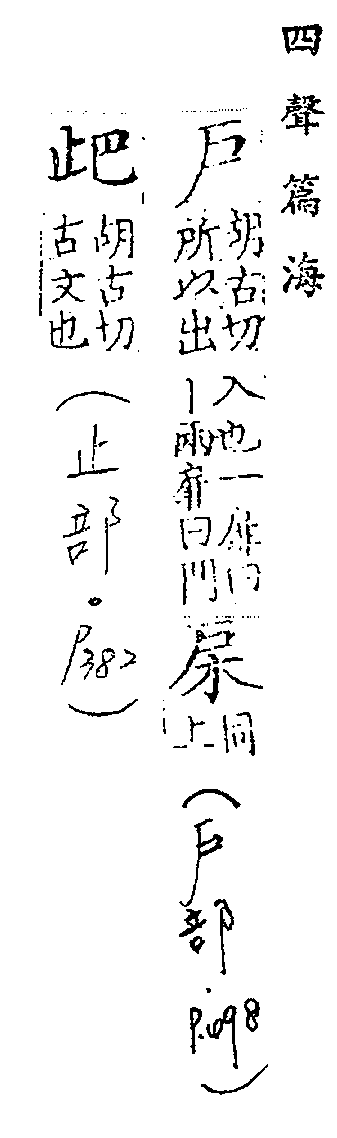 四聲篇海
戶 胡古切所以出入也一扉曰丨兩扉曰門 㦿 同上 (戶部.P.698)
𣥄 胡古切古文也 (止部。P382)